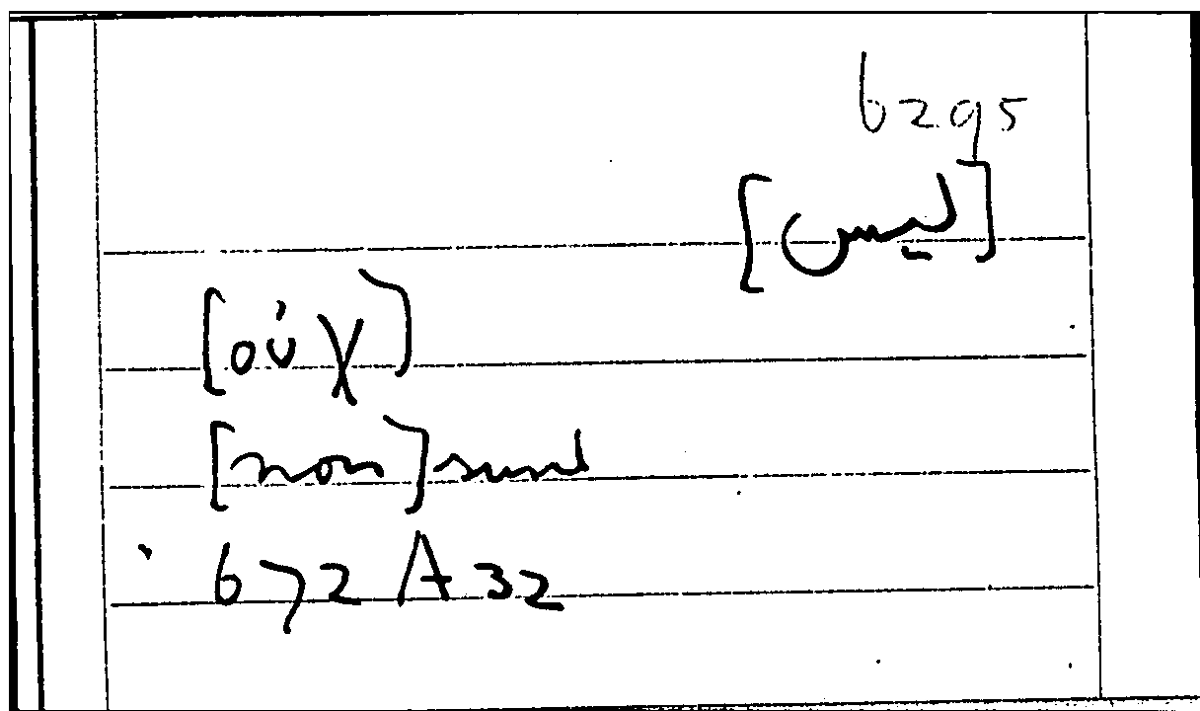 6295
[ليس]
[οὐχ]
[non] sunt
672 A 32